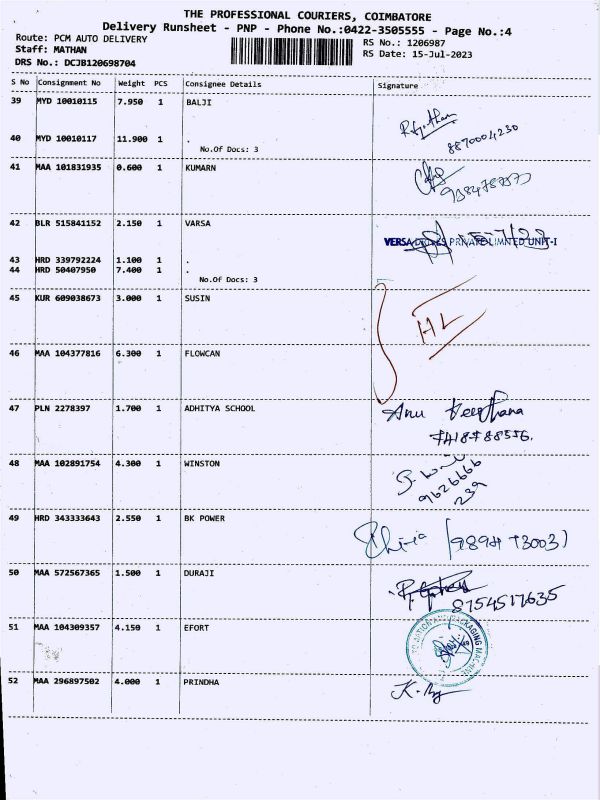 THE PROFESSIONAL COURIERS, COIMBATORE
Delivery Runsheet - PNP - Phone No.:0422-3505555 - Page No.:4
Route: PCM AUTO DELIVERY
RS No.: 1206987
Staff: MATHAN
RS Date: 15-Jul-2023
DRS No.: DCJB120698704
S No Consignment No Weight PCS Consignee Details Signature
39 MYD 10010115 7.950 1 BALJI
40 MYD 10010117 11.900 1 .
8870004230
No.Of Docs: 3
41 MAA 101831935 0.600 1 KUMARN
42 BLR 515841152 2.150 1 VARSA
PRIVATE LIMITED UNIT-I
43 HRD 339792224 1.100 1 .
44 HRD 50407950 7.400 1 .
No.Of Docs: 3
45 KUR 609038673 3.000 1 SUSIN
HL
46 MAA 104377816 6.300 1 FLOWCAN
47 PLN 2278397 1.700 1 ADHITYA SCHOOL
Anu
48 MAA 102891754 4.300 1 WINSTON
9626666
239
49 HRD 343333643 2.550 1 BK POWER
50 MAA 572567365 1.500 1 DURAJI
8754517635
51 MAA 104309357 4.150 1 EFORT
52 MAA 296897502 4.000 1 PRINDHA